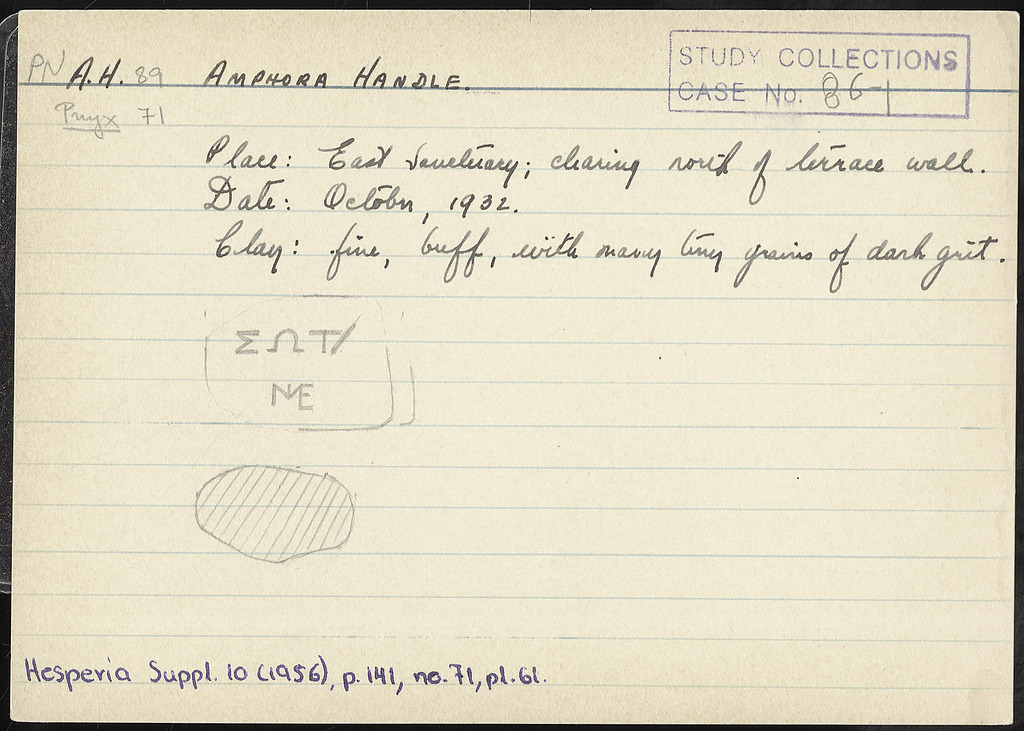 PN A.H. 89 AMPHORA HANDLE.
STUDY COLLECTIONS
CASE No. 86-1
Pnyx 71
Place: East Sanctuary; clearing north of terrace wall.
Date: October, 1932.
Clay: fine, buff, with many tiny grains of dark grit.
ΣΩΤ/
ΝΕ
Hesperia Suppl. 10 (1956), p. 141, no. 71, pl. 61.